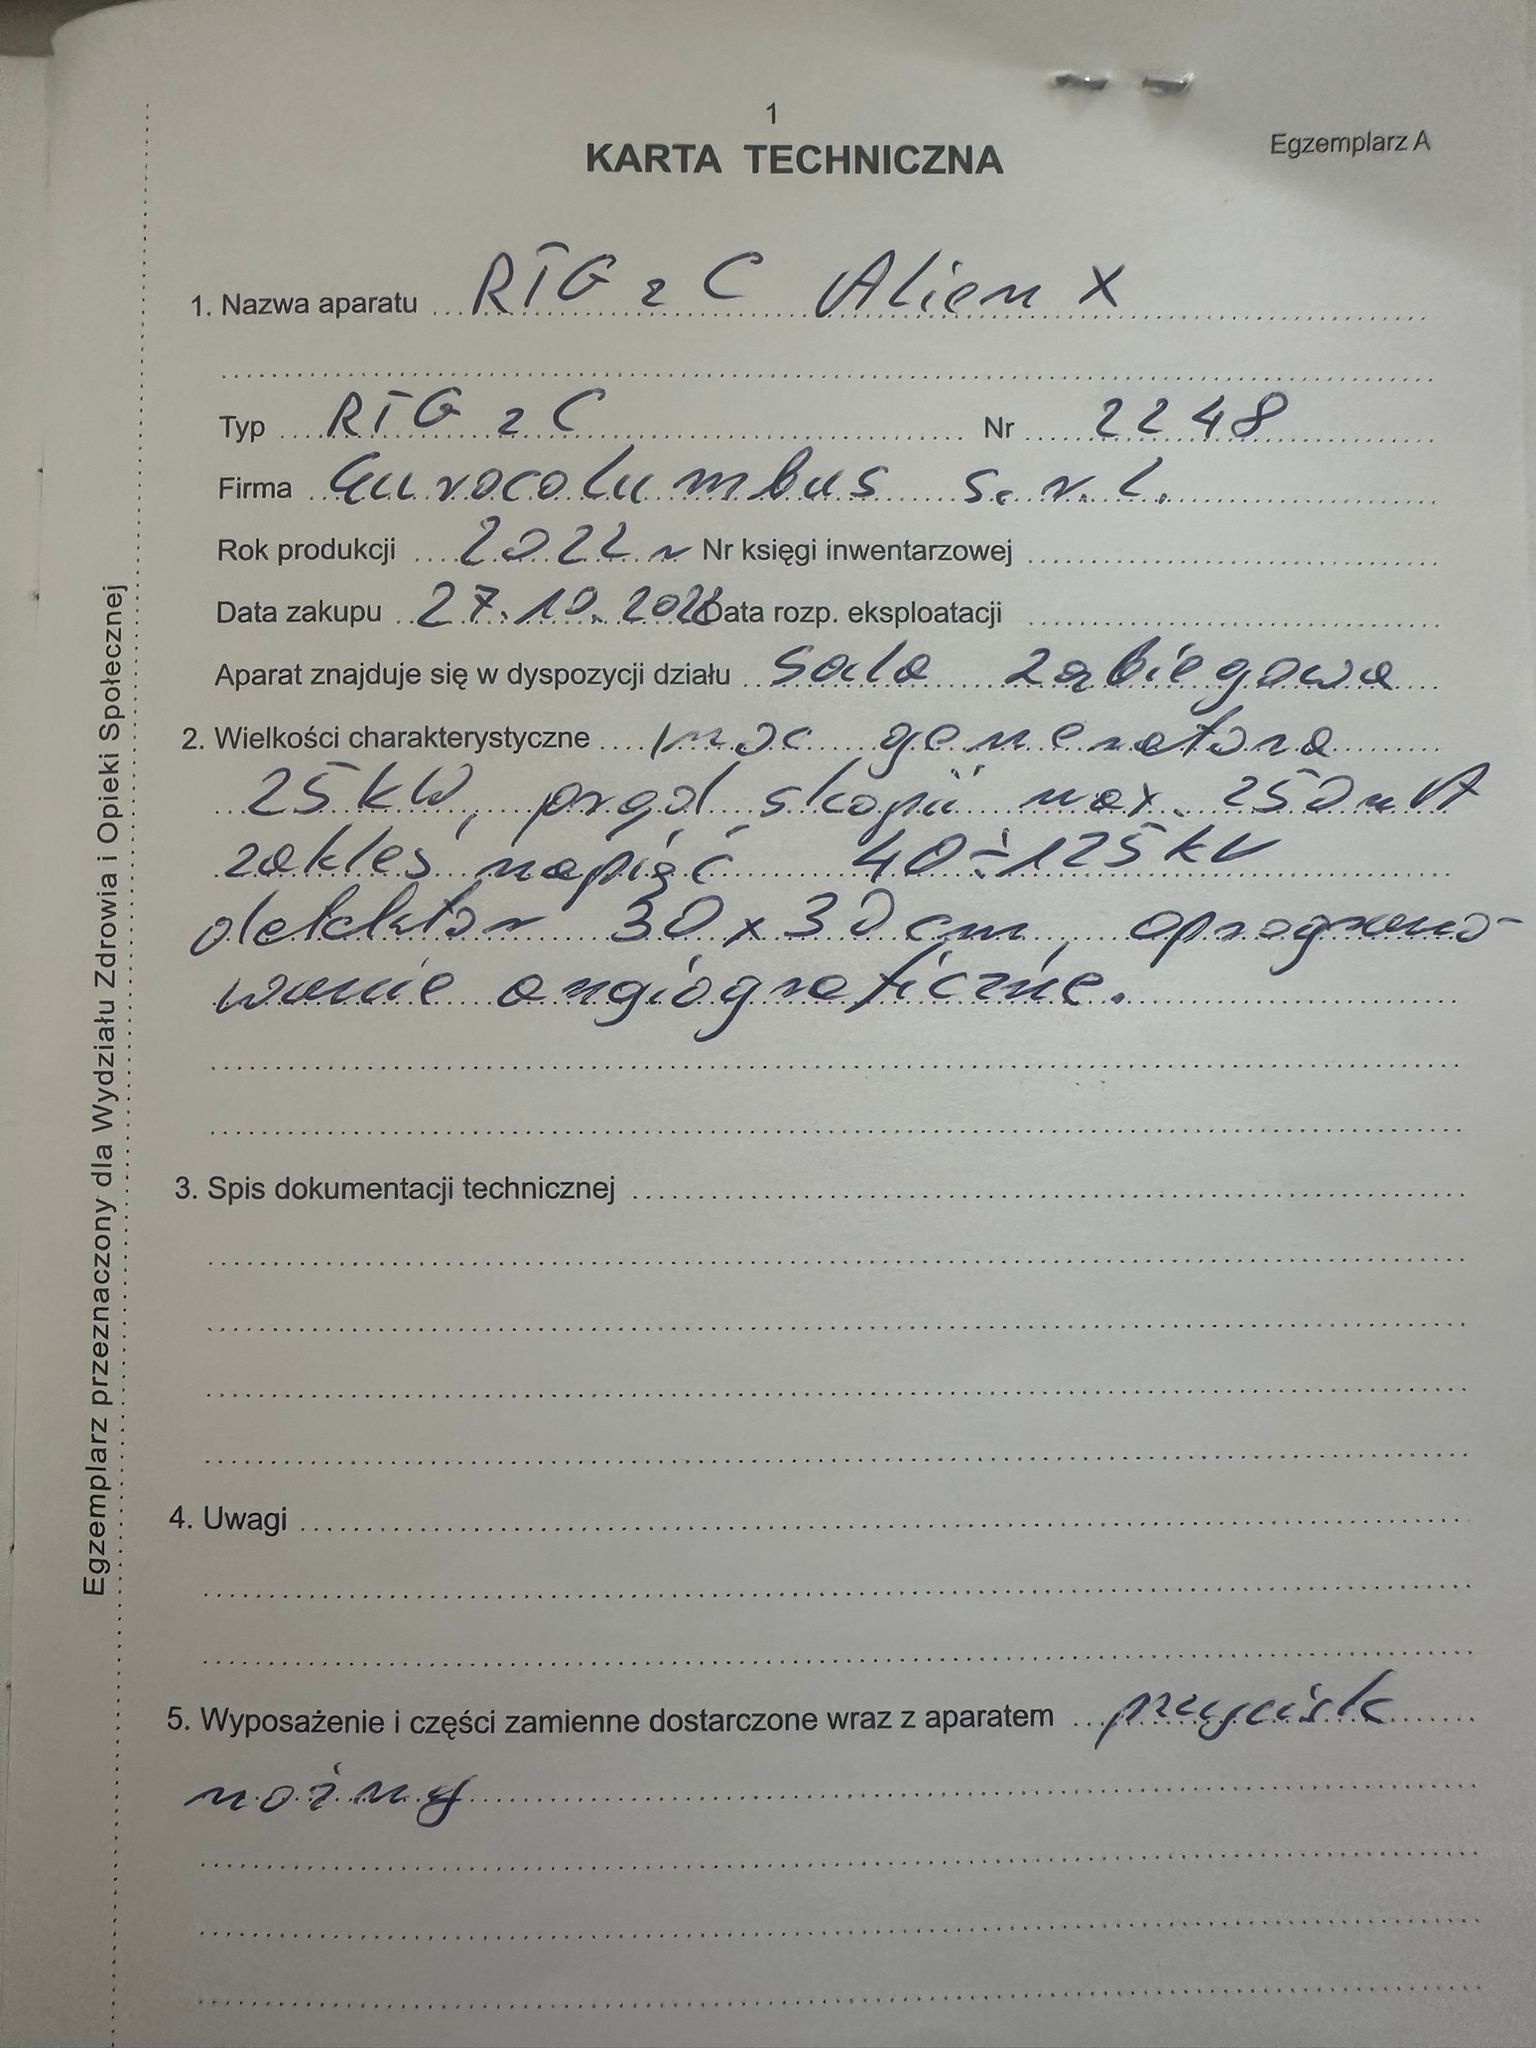 1
KARTA TECHNICZNA
Egzemplarz A
1. Nazwa aparatu RTG z C Alien X
Typ RTG z C Nr 2248
Firma Eurocolumbus s.r.l.
Rok produkcji 2022 r Nr księgi inwentarzowej
Data zakupu 27.10. Data rozp. eksploatacji
Aparat znajduje się w dyspozycji działu Sala zabiegowa
2. Wielkości charakterystyczne moc generatora
25 kW, prąd skopii max. 250mA
zakres napięć 40÷125 kV
detektor 30 x 30 cm, oprogramo-
wanie angiograficzne.
3. Spis dokumentacji technicznej
4. Uwagi
5. Wyposażenie i części zamienne dostarczone wraz z aparatem przycisk
nożny
Egzemplarz przeznaczony dla Wydziału Zdrowia i Opieki Społecznej